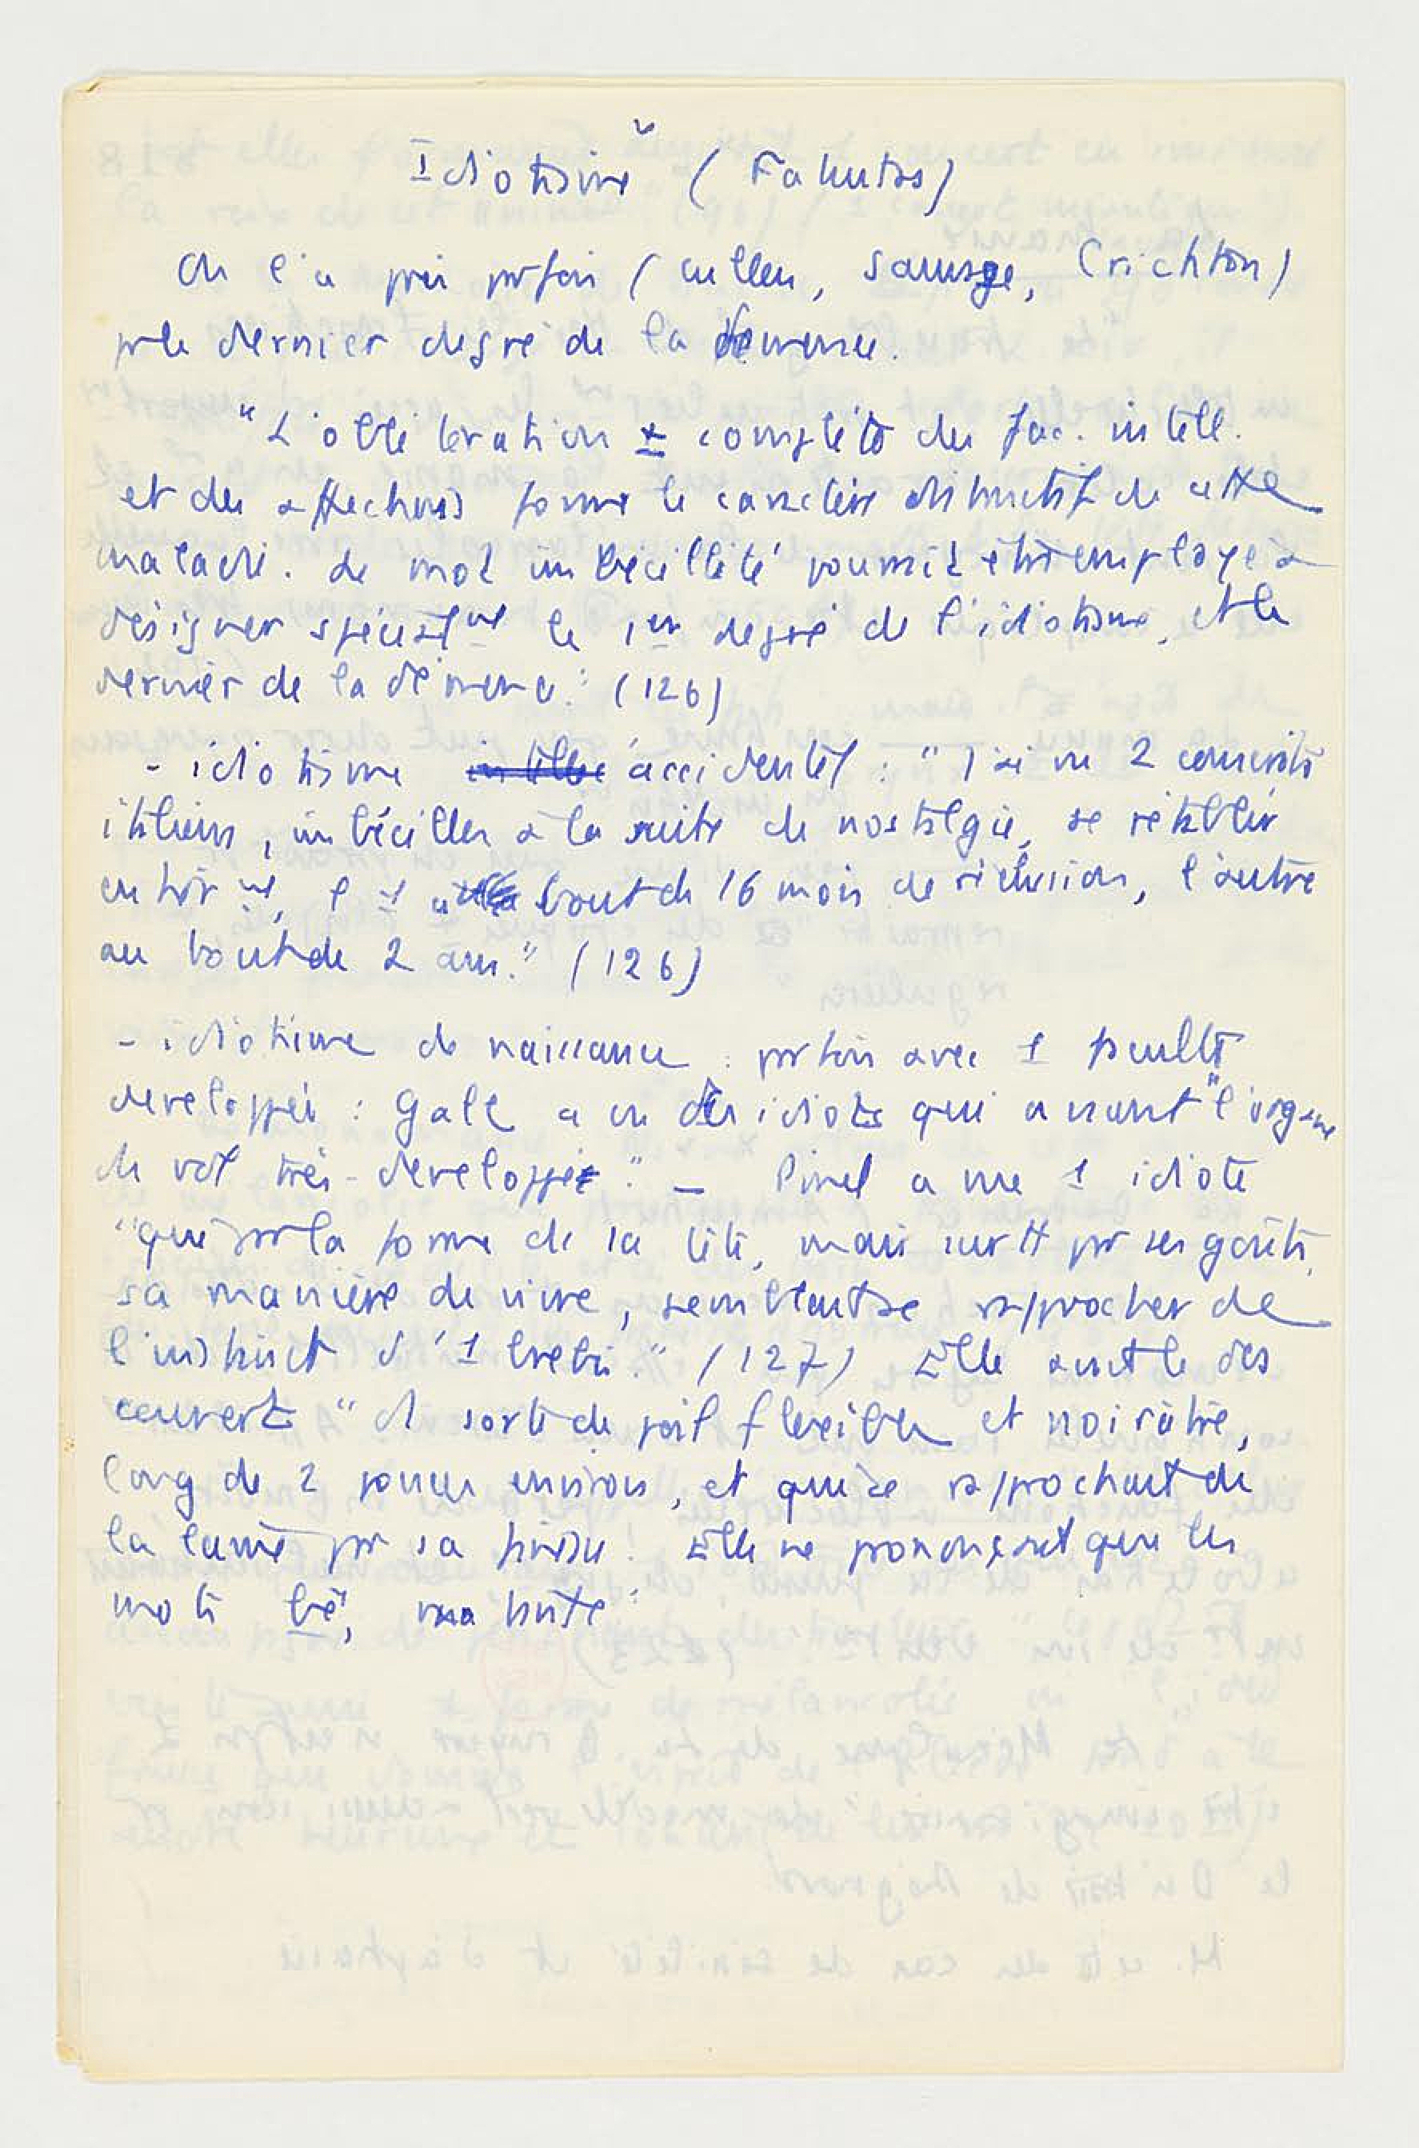 Idiotisme (Fatuitas)
On l'a pris parfois (Cullen, Sauvage, Crichton)
pr le dernier degré de la démence.
"L'oblitération ± complète des fac. intell.
et des affections forme le caractère distinctif de cette
maladie. Le mot imbécillité pourrait être employé à
désigner spécialmt le 1er degré de l'idiotisme, et le
dernier de la démence." (126)
- idiotisme accidentel : "J'ai vu 2 conscrits
italiens, imbéciles à la suite de nostalgie, se rétablir
entièrmt, l'1 au bout de 16 mois de réclusion, l'autre
au bout de 2 ans." (126)
- idiotisme de naissance : parfois avec 1 faculté
développée : Gall a vu des idiots qui avaient "l'organe
du vol très-développé". — Pinel a vu 1 idiote
"qui par la forme de sa tête, mais surtt par ses goûts,
sa manière de vivre, semblait se rapprocher de
l'instinct d'1 brebis." (127) Elle avait le dos
couvert "d'1 sorte de poil flexible et noirâtre,
long de 2 pouces environ, et qui se rapprochait de
la laine par sa finesse". Elle ne prononçait que les
mots bé, ma tante"